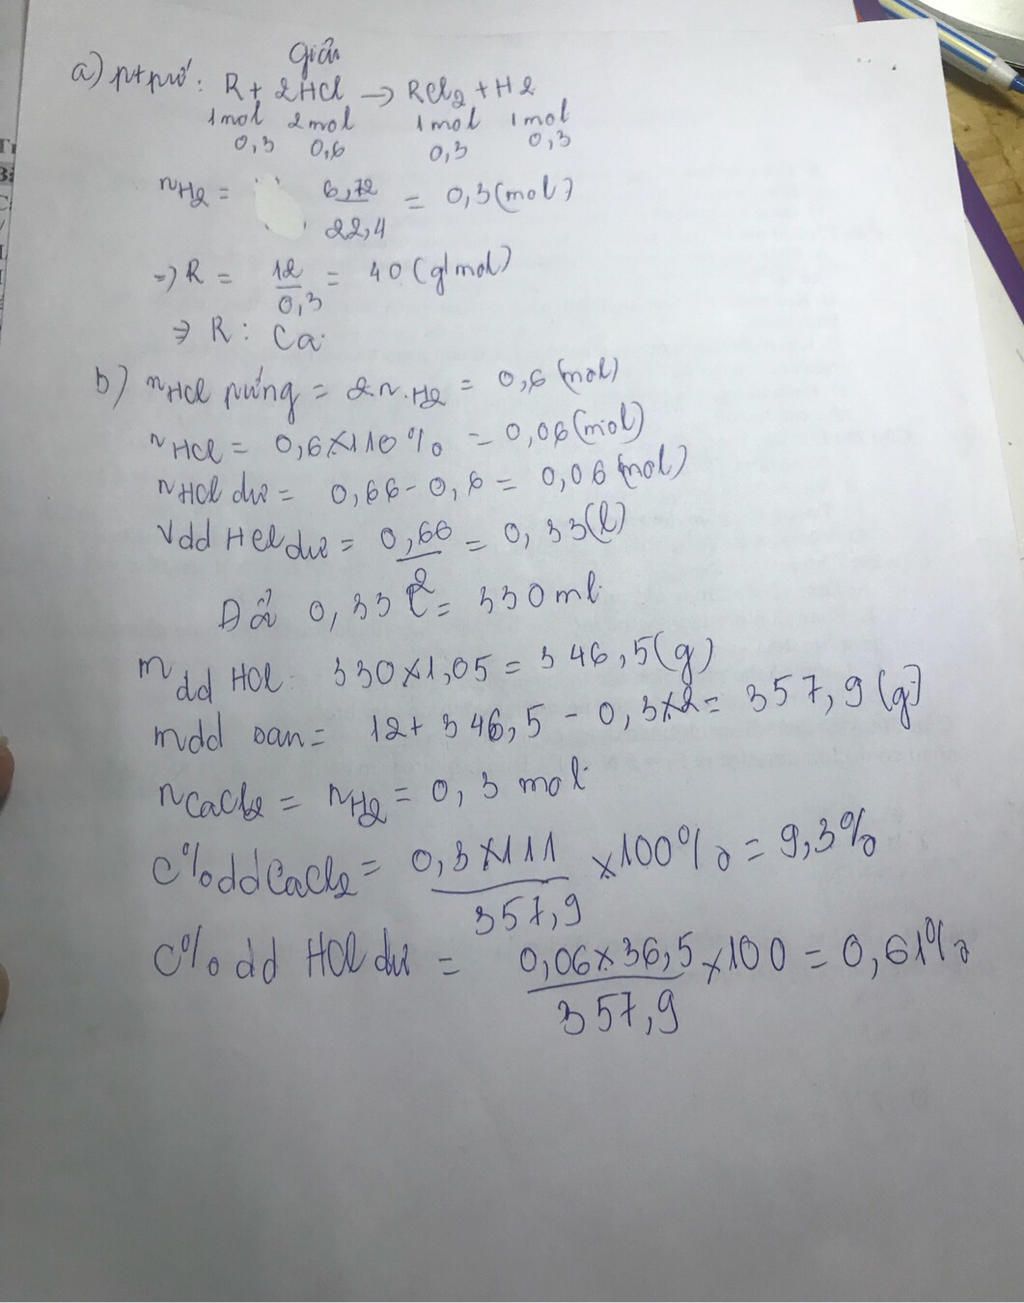 Giải
a) ptpứ: R + 2HCl → RCl2 + H2
1mol 2mol 1mol 1mol
0,3 0,6 0,3 0,3
nH2 = 6,72/22,4 = 0,3 (mol)
=> R = 12/0,3 = 40 (g/mol)
=> R: Ca
b) nHCl pứng = 2.n.H2 = 0,6 (mol)
nHCl = 0,6×110% = 0,06 (mol)
nHCl dư = 0,66 - 0,6 = 0,06 (mol)
Vdd HCl dư = 0,66/2 = 0,33 (l)
Đổi 0,33 l = 330 ml
mdd HCl 330×1,05 = 346,5 (g)
mdd san = 12 + 346,5 - 0,3×2 = 357,9 (g)
nCaCl2 = nH2 = 0,3 mol
C% dd CaCl2 = 0,3×111/357,9 ×100% = 9,3%
C% dd HCl dư = 0,06×36,5/357,9 ×100 = 0,61%